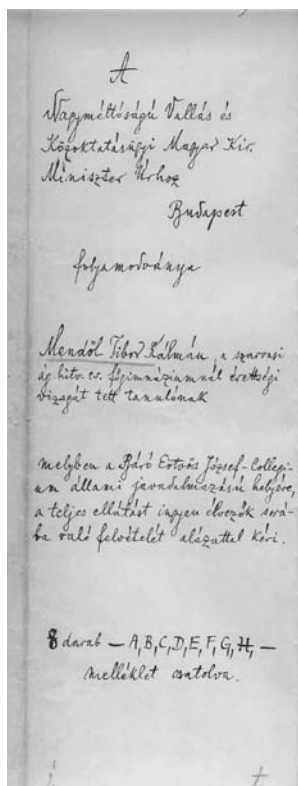 A
Nagyméltóságú Vallás és
Közoktatásügyi Magyar Kir.
Miniszter Úrhoz
Budapest
folyamodványa
Mendöl Tibor Kálmán, a szarvasi
ág. hitv. ev. főgimnáziumnál érettségi
vizsgát tett tanulónak
melyben a Báró Eötvös József-Collegi-
um állami javadalmazású helyére,
a teljes ellátást ingyen élvezők sorá-
ba való felvételét alázattal kéri.
8 darab — A, B, C, D, E, F, G, H, —
melléklet csatolva.